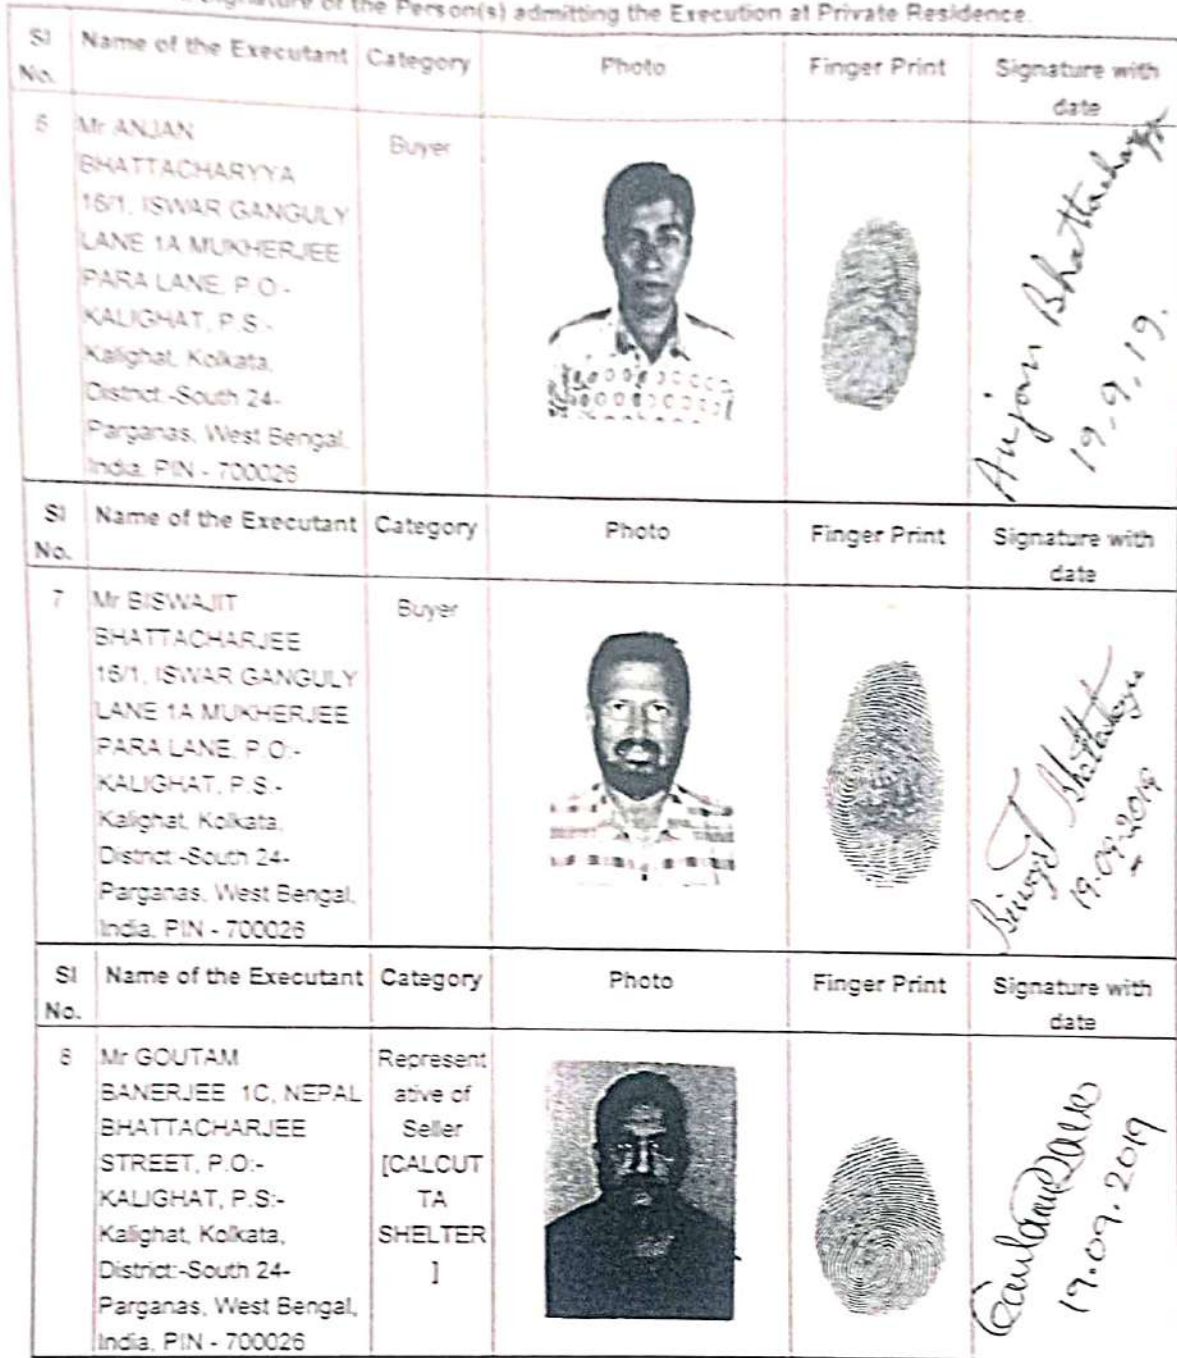 Signature of the Person(s) admitting the Execution at Private Residence.
Sl No. Name of the Executant Category Photo Finger Print Signature with date
6 Mr ANJAN Buyer
BHATTACHARYYA
16/1, ISWAR GANGULY
LANE 1A MUKHERJEE
PARA LANE, P.O:-
KALIGHAT, P.S:-
Kalighat, Kolkata,
District:-South 24-
Parganas, West Bengal,
India, PIN - 700026
Anjan Bhattacharyya
19.9.19.
Sl No. Name of the Executant Category Photo Finger Print Signature with date
7 Mr BISWAJIT Buyer
BHATTACHARJEE
16/1, ISWAR GANGULY
LANE 1A MUKHERJEE
PARA LANE, P.O:-
KALIGHAT, P.S:-
Kalighat, Kolkata,
District:-South 24-
Parganas, West Bengal,
India, PIN - 700026
Biswajit Bhattacharjee
19.09.2019
Sl No. Name of the Executant Category Photo Finger Print Signature with date
8 Mr GOUTAM
BANERJEE 1C, NEPAL
BHATTACHARJEE
STREET, P.O:-
KALIGHAT, P.S:-
Kalighat, Kolkata,
District:-South 24-
Parganas, West Bengal,
India, PIN - 700026
Represent
ative of
Seller
[CALCUT
TA
SHELTER
]
19.09.2019